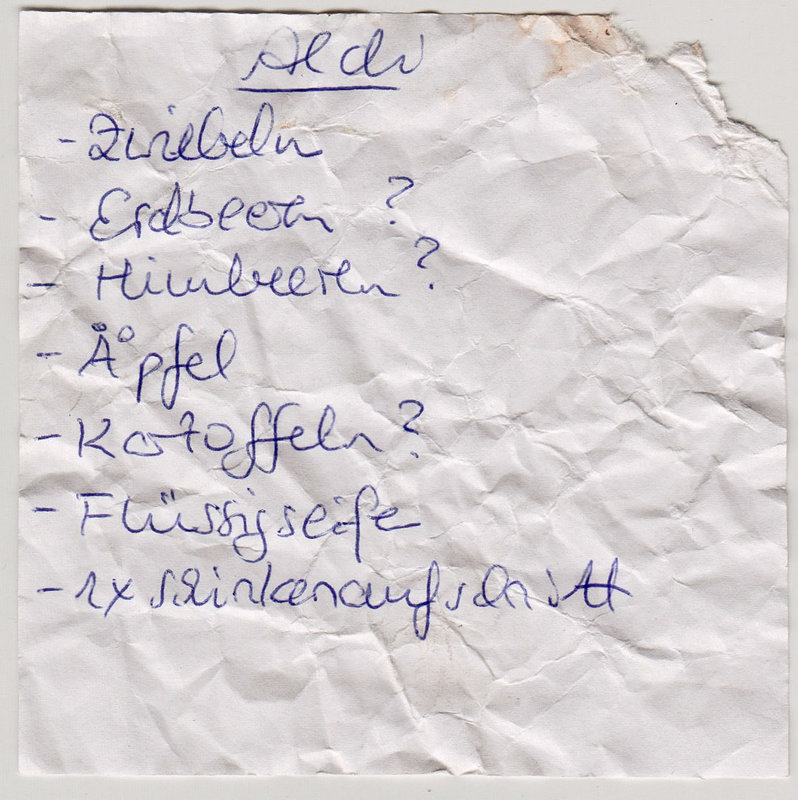 Aldi
- Zwiebeln
- Erdbeeren ?
- Himbeeren ?
- Äpfel
- Kartoffeln ?
- Flüssigseife
- 1x Schinkenaufschnitt